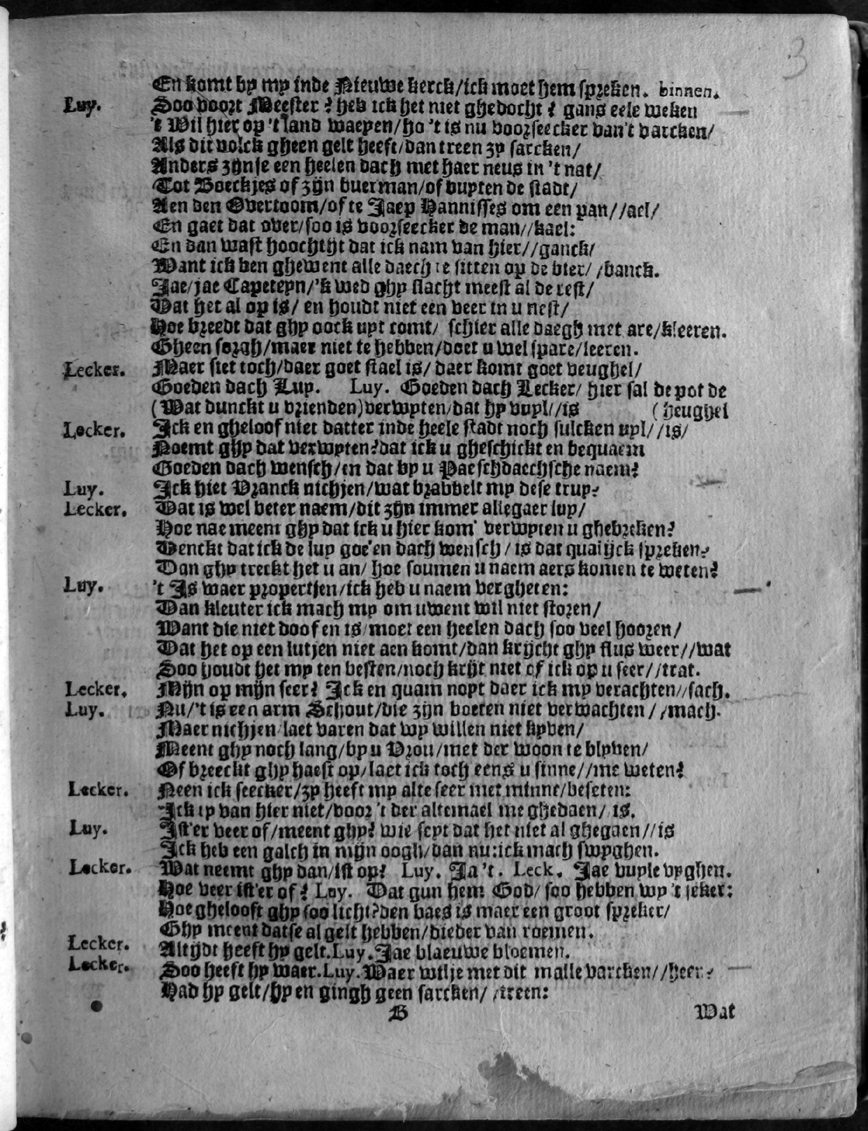 3
En komt by my inde Nieuwe kerck/ick moet hem spreken. binnen.
Luy. Soo voort Meester? heb ick het niet ghedocht? gans eele weken
't Wil hier op 't land waeyen/ho 't is nu voorseecker van't varcken/
Als dit volck gheen gelt heeft/dan treen zy sarcken/
Anders zijnse een heelen dach met haer neus in 't nat/
Tot Boeckjes of zijn buerman/of buyten de stadt/
Aen den Overtoom/of te Jaep Hannisses om een pan//ael/
En gaet dat over/soo is voorseecker de man//kael:
En dan wast hoochtijt dat ick nam van hier//ganck/
Want ick ben ghewent alle daech te sitten op de bier//banck.
Jae/jae Capeteyn/'k wed ghy slacht meest al de rest/
Dat het al op is/ en houdt niet een veer in u nest/
Hoe breedt dat ghy oock uyt comt/ schier alle daegh met are/kleeren.
Gheen sorgh/maer niet te hebben/doet u wel spare/leeren.
Lecker. Maer siet toch/daer goet stael is/ daer komt goet veughel/
Goeden dach Luy. Luy. Goeden dach Lecker/ hier sal de pot de
(Wat dunckt u vrienden) verwyten/dat hy vuyl//is (heughel
Lecker. Ick en gheloof niet datter inde heele stadt noch sulcken uyl//is/
Noemt ghy dat verwyten? dat ick u gheschickt en bequaem
Goeden dach wensch/en dat by u Paeschdaechsche naem?
Luy. Ick hiet Vranck nichjen/wat brabbelt my dese truy?
Lecker. Dat is wel beter naem/dit zijn immer allegaer luy/
Hoe nae meent ghy dat ick u hier kom verwyten u ghebreken?
Denckt dat ick de luy goe'en dach wensch/ is dat qualijck spreken?
Dan ghy treckt het u an/ hoe soumen u naem aers komen te weten?
Luy. 't Is waer propertjen/ick heb u naem vergheten:
Dan kleuter ick mach my om uwent wil niet storen/
Want die niet doof en is/moet een heelen dach soo veel hooren/
Dat het op een lutjen niet aen komt/dan krijcht ghy flus weer//wat
Soo houdt het my ten besten/noch krijt niet of ick op u seer//trat.
Lecker. Mijn op mijn seer? Ick en quam noyt daer ick my verachten//sach.
Luy. Nu/'t is een arm Schout/die zijn boeten niet verwachten//mach.
Maer nichjen laet varen dat wy willen niet kyven/
Meent ghy noch lang/by u Vrou/met der woon te blyven/
Of breeckt ghy haest op/laet ick toch eens u sinne//me weten?
Lecker. Neen ick seecker/zy heeft my alte seer met minne/beseten:
Ick ty van hier niet/voor 't der altemael me ghedaen/ is.
Luy. Ist'er veer of/meent ghy? wie seyt dat het niet al ghegaen//is
Ick heb een galch in mijn oogh/dan nu:ick mach swyghen.
Lecker. Wat neemt ghy dan/ist op? Luy. Ja 't. Leck. Jae vuyle vyghen.
Hoe veer ist'er of? Luy. Dat gun hem God/ soo hebben wy 't seker:
Hoe ghelooft ghy soo licht? den baes is maer een groot spreker/
Ghy meent datse al gelt hebben/die der van roemen.
Lecker. Altijdt heeft hy gelt. Luy. Jae blaeuwe bloemen.
Lecker. Soo heeft hy waer. Luy. Waer wilje met dit malle varcken//heer?
Had hy gelt/hy en gingh geen sarcken/ /treen:
B Wat